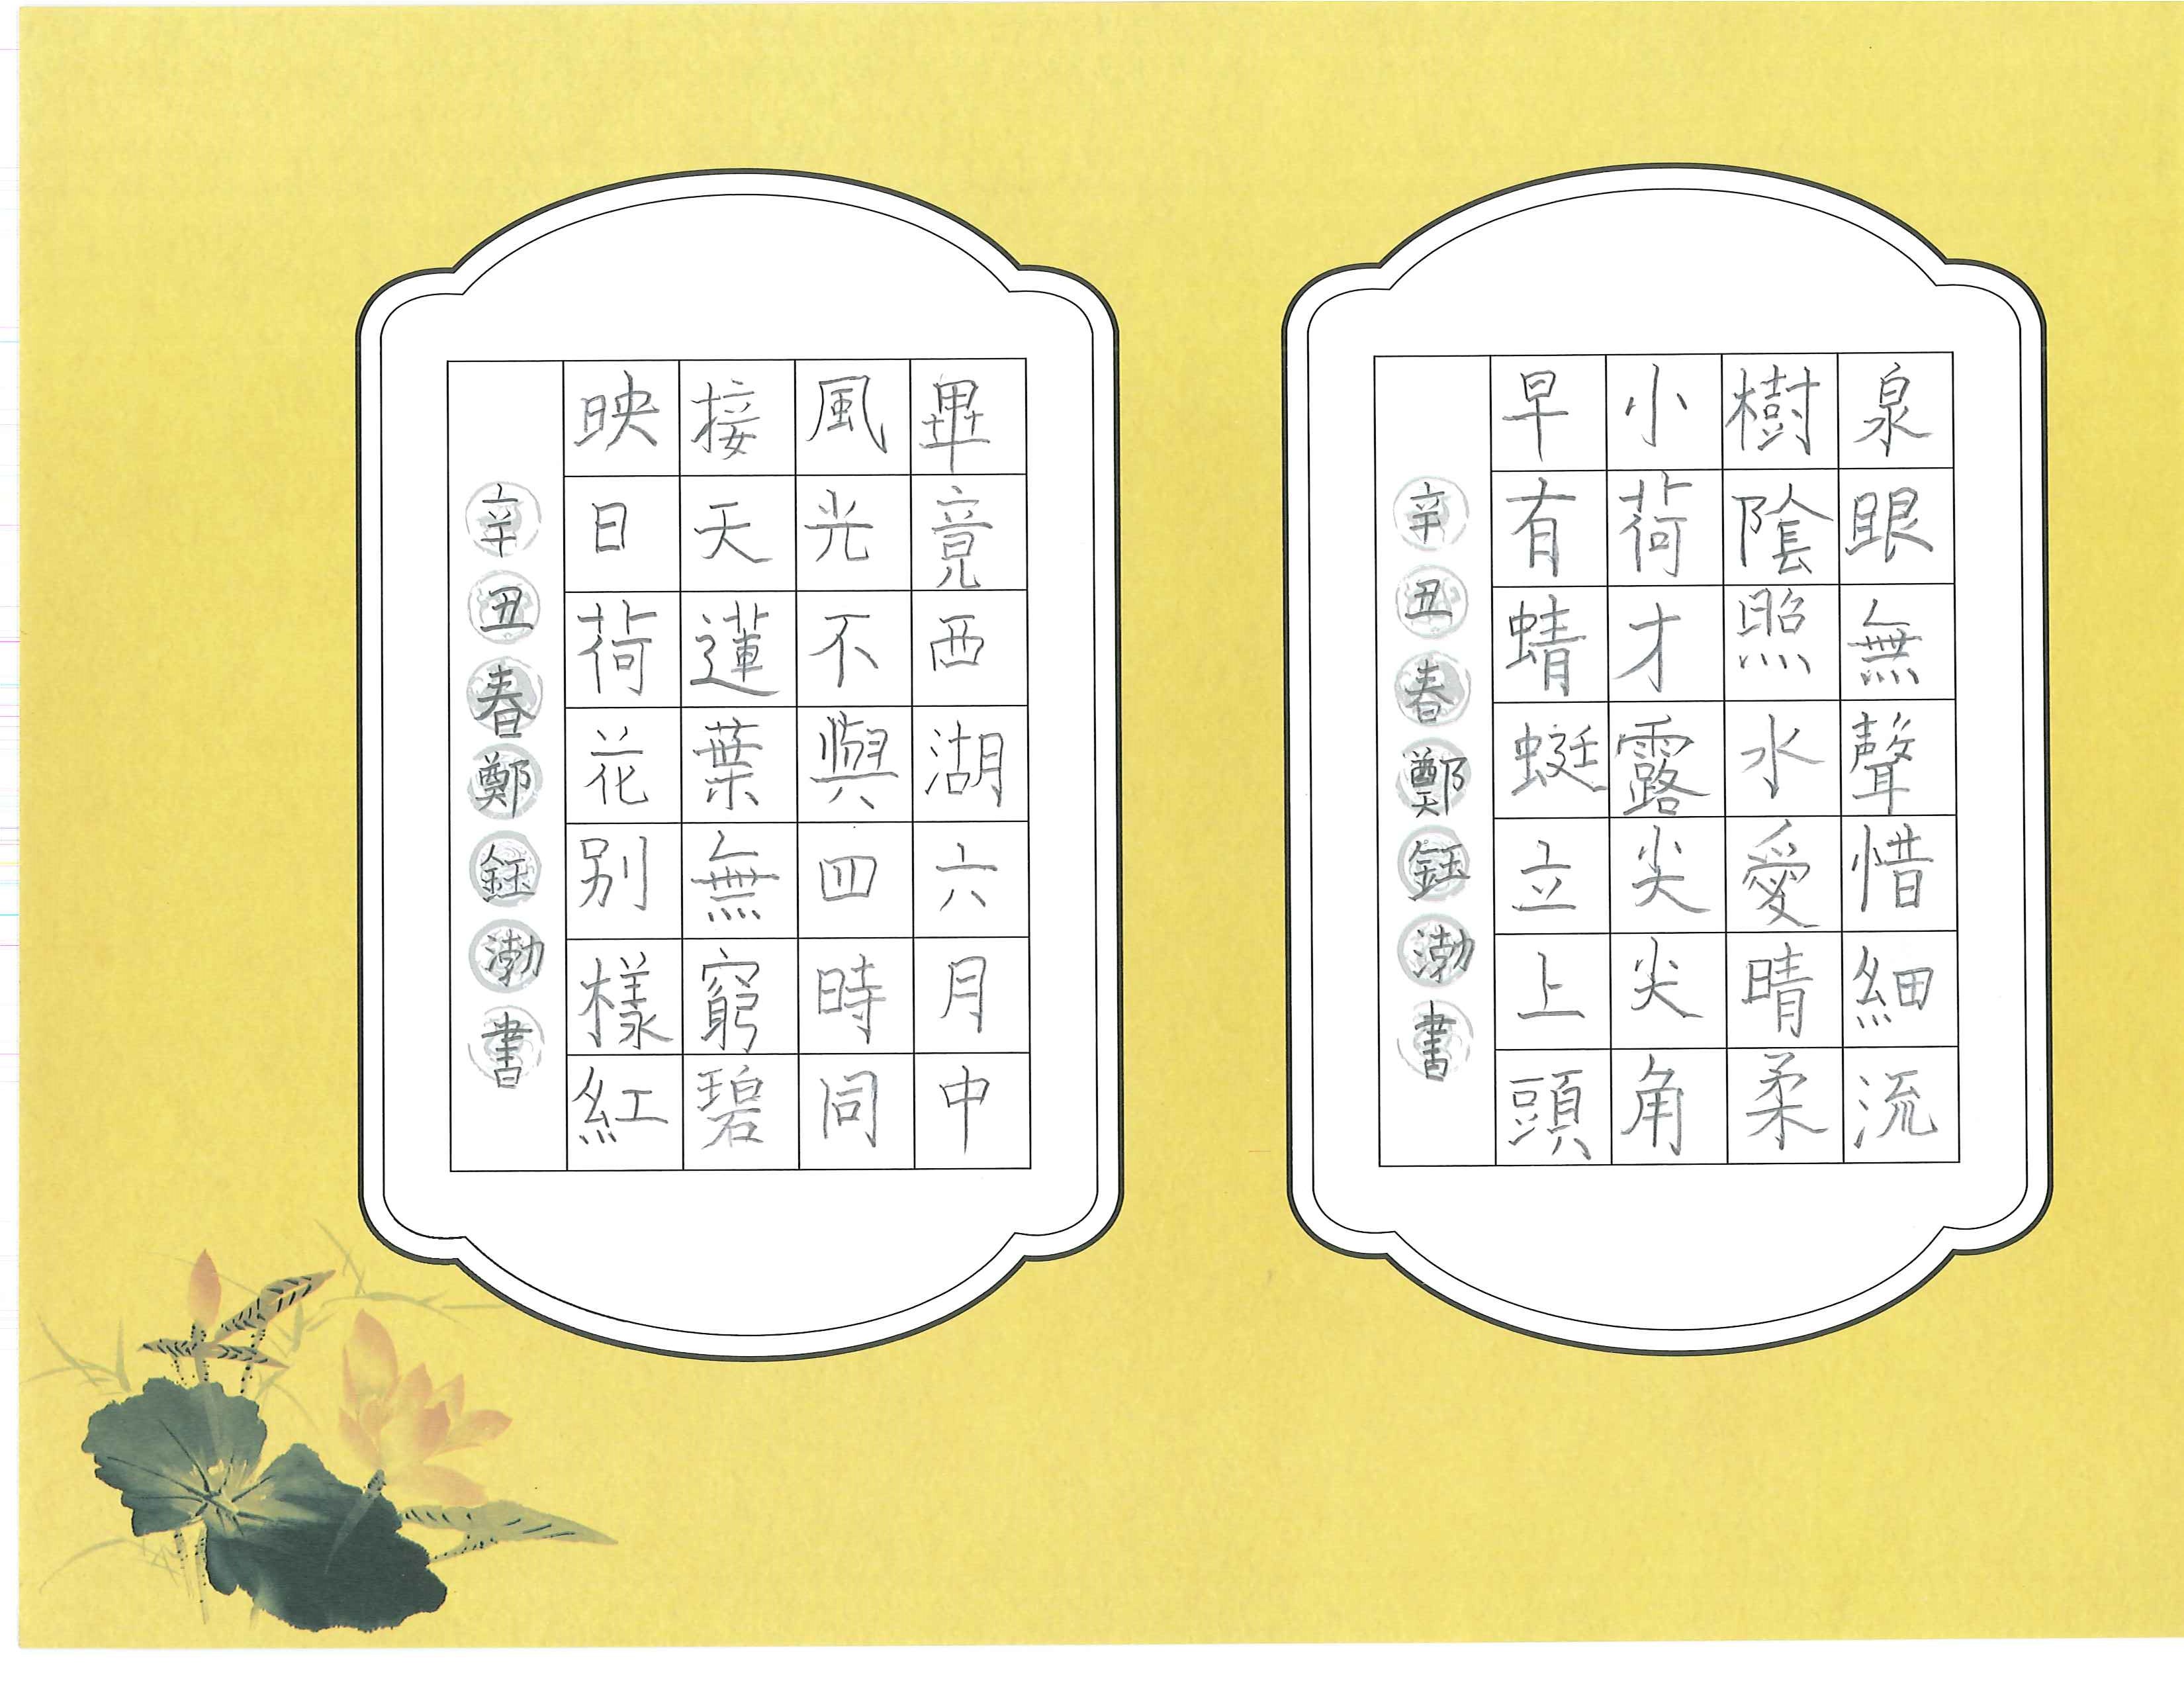 泉眼無聲惜細流
樹陰照水愛晴柔
小荷才露尖尖角
早有蜻蜓立上頭
辛丑春鄭鈺渤書
畢竟西湖六月中
風光不與四時同
接天蓮葉無窮碧
映日荷花別樣紅
辛丑春鄭鈺渤書